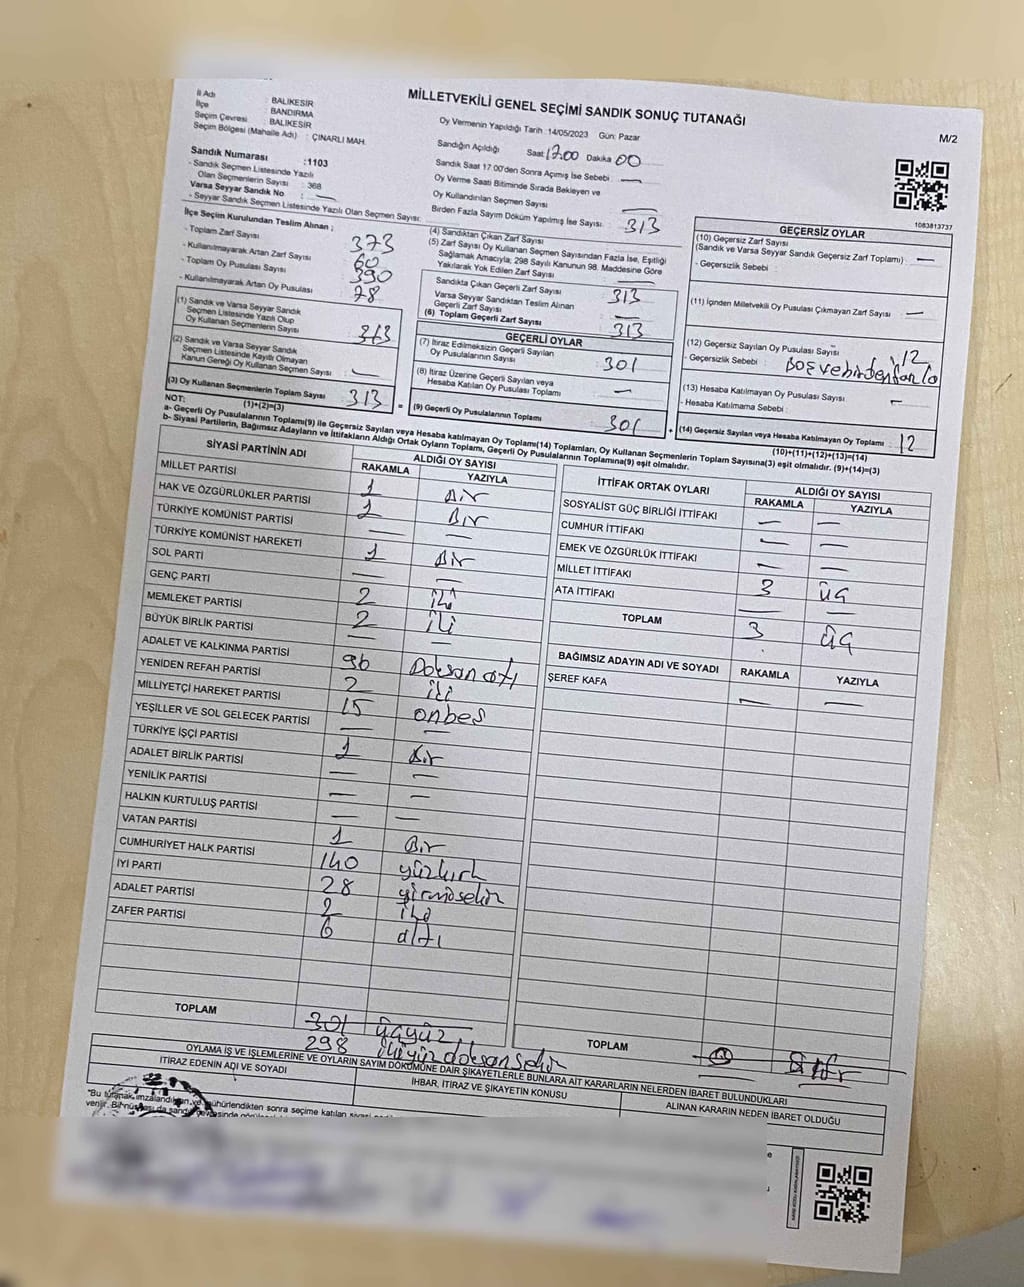 MİLLETVEKİLİ GENEL SEÇİMİ SANDIK SONUÇ TUTANAĞI
M/2
İl Adı : BALIKESİR
İlçe : BANDIRMA
Seçim Çevresi : BALIKESİR
Seçim Bölgesi (Mahalle Adı) : ÇINARLI MAH.
Sandık Numarası :1103
- Sandık Seçmen Listesinde Yazılı
Olan Seçmenlerin Sayısı : 368
Varsa Seyyar Sandık No : —
- Seyyar Sandık Seçmen Listesinde Yazılı Olan Seçmen Sayısı:
Oy Vermenin Yapıldığı Tarih :14/05/2023 Gün: Pazar
Sandığın Açıldığı Saat: 17.00 Dakika 00
Sandık Saat 17.00'den Sonra Açımış İse Sebebi : —
Oy Verme Saati Bitiminde Sırada Bekleyen ve
Oy Kullandırılan Seçmen Sayısı —
Birden Fazla Sayım Döküm Yapılmış İse Sayısı:
1083813737
İlçe Seçim Kurulundan Teslim Alınan ;
- Toplam Zarf Sayısı 373
- Kullanılmayarak Artan Zarf Sayısı 60
- Toplam Oy Pusulası Sayısı 390
- Kullanılmayarak Artan Oy Pusulası 78
(1) Sandık ve Varsa Seyyar Sandık
Seçmen Listesinde Yazılı Olup
Oy Kullanan Seçmenlerin Sayısı
(2) Sandık ve Varsa Seyyar Sandık
Seçmen Listesinde Kayıtlı Olmayan
Kanun Gereği Oy Kullanan Seçmen Sayısı : —
(3) Oy Kullanan Seçmenlerin Toplam Sayısı 313
(1)+(2)=(3)
(4) Sandıktan Çıkan Zarf Sayısı : 313
(5) Zarf Sayısı Oy Kullanan Seçmen Sayısından Fazla İse, Eşitliği
Sağlamak Amacıyla; 298 Sayılı Kanunun 98. Maddesine Göre
Yakılarak Yok Edilen Zarf Sayısı : —
Sandıkta Çıkan Geçerli Zarf Sayısı : 313
Varsa Seyyar Sandıktan Teslim Alınan
Geçerli Zarf Sayısı : —
(6) Toplam Geçerli Zarf Sayısı 313
GEÇERLİ OYLAR
(7) İtiraz Edilmeksizin Geçerli Sayılan
Oy Pusulalarının Sayısı : 301
(8) İtiraz Üzerine Geçerli Sayılan veya
Hesaba Katılan Oy Pusulası Toplamı : —
= (9) Geçerli Oy Pusulalarının Toplamı : 301
GEÇERSİZ OYLAR
(10) Geçersiz Zarf Sayısı
(Sandık ve Varsa Seyyar Sandık Geçersiz Zarf Toplamı) : —
- Geçersizlik Sebebi :
(11) İçinden Milletvekili Oy Pusulası Çıkmayan Zarf Sayısı : —
(12) Geçersiz Sayılan Oy Pusulası Sayısı : 12
- Geçersizlik Sebebi : Boş ve birden fazla
(13) Hesaba Katılmayan Oy Pusulası Sayısı : —
- Hesaba Katılmama Sebebi :
+ (14) Geçersiz Sayılan veya Hesaba Katılmayan Oy Toplamı : 12
(10)+(11)+(12)+(13)=(14)
NOT:
a- Geçerli Oy Pusulalarının Toplamı(9) ile Geçersiz Sayılan veya Hesaba katılmayan Oy Toplamı(14) Toplamları, Oy Kullanan Seçmenlerin Toplam Sayısına(3) eşit olmalıdır. (9)+(14)=(3)
b- Siyasi Partilerin, Bağımsız Adayların ve İttifakların Aldığı Ortak Oyların Toplamı, Geçerli Oy Pusulalarının Toplamına(9) eşit olmalıdır.
SİYASİ PARTİNİN ADI ALDIĞI OY SAYISI
RAKAMLA YAZIYLA
MİLLET PARTİSİ 1 Bir
HAK VE ÖZGÜRLÜKLER PARTİSİ 1 Bir
TÜRKİYE KOMÜNİST PARTİSİ — —
TÜRKİYE KOMÜNİST HAREKETİ 1 Bir
SOL PARTİ — —
GENÇ PARTİ 2 iki
MEMLEKET PARTİSİ 2 iki
BÜYÜK BİRLİK PARTİSİ — —
ADALET VE KALKINMA PARTİSİ 96 Doksan altı
YENİDEN REFAH PARTİSİ 2 iki
MİLLİYETÇİ HAREKET PARTİSİ 15 onbeş
YEŞİLLER VE SOL GELECEK PARTİSİ — —
TÜRKİYE İŞÇİ PARTİSİ 1 Bir
ADALET BİRLİK PARTİSİ — —
YENİLİK PARTİSİ — —
HALKIN KURTULUŞ PARTİSİ — —
VATAN PARTİSİ 1 Bir
CUMHURİYET HALK PARTİSİ 140 yüzkırk
İYİ PARTİ 28 yirmisekiz
ADALET PARTİSİ 2 iki
ZAFER PARTİSİ 6 altı
TOPLAM 301 üçyüz
298 ikiyüzdoksansekiz
İTTİFAK ORTAK OYLARI ALDIĞI OY SAYISI
RAKAMLA YAZIYLA
SOSYALİST GÜÇ BİRLİĞİ İTTİFAKI — —
CUMHUR İTTİFAKI — —
EMEK VE ÖZGÜRLÜK İTTİFAKI — —
MİLLET İTTİFAKI 3 üç
ATA İTTİFAKI — —
TOPLAM 3 üç
BAĞIMSIZ ADAYIN ADI VE SOYADI RAKAMLA YAZIYLA
ŞEREF KAFA — —
TOPLAM Sıfır
OYLAMA İŞ VE İŞLEMLERİNE VE OYLARIN SAYIM DÖKÜMÜNE DAİR ŞİKAYETLERLE BUNLARA AİT KARARLARIN NELERDEN İBARET BULUNDUKLARI
İTİRAZ EDENİN ADI VE SOYADI
İHBAR, İTİRAZ VE ŞİKAYETİN KONUSU
ALINAN KARARIN NEDEN İBARET OLDUĞU
"Bu tutanak imzalandıktan ve mühürlendikten sonra seçime katılan